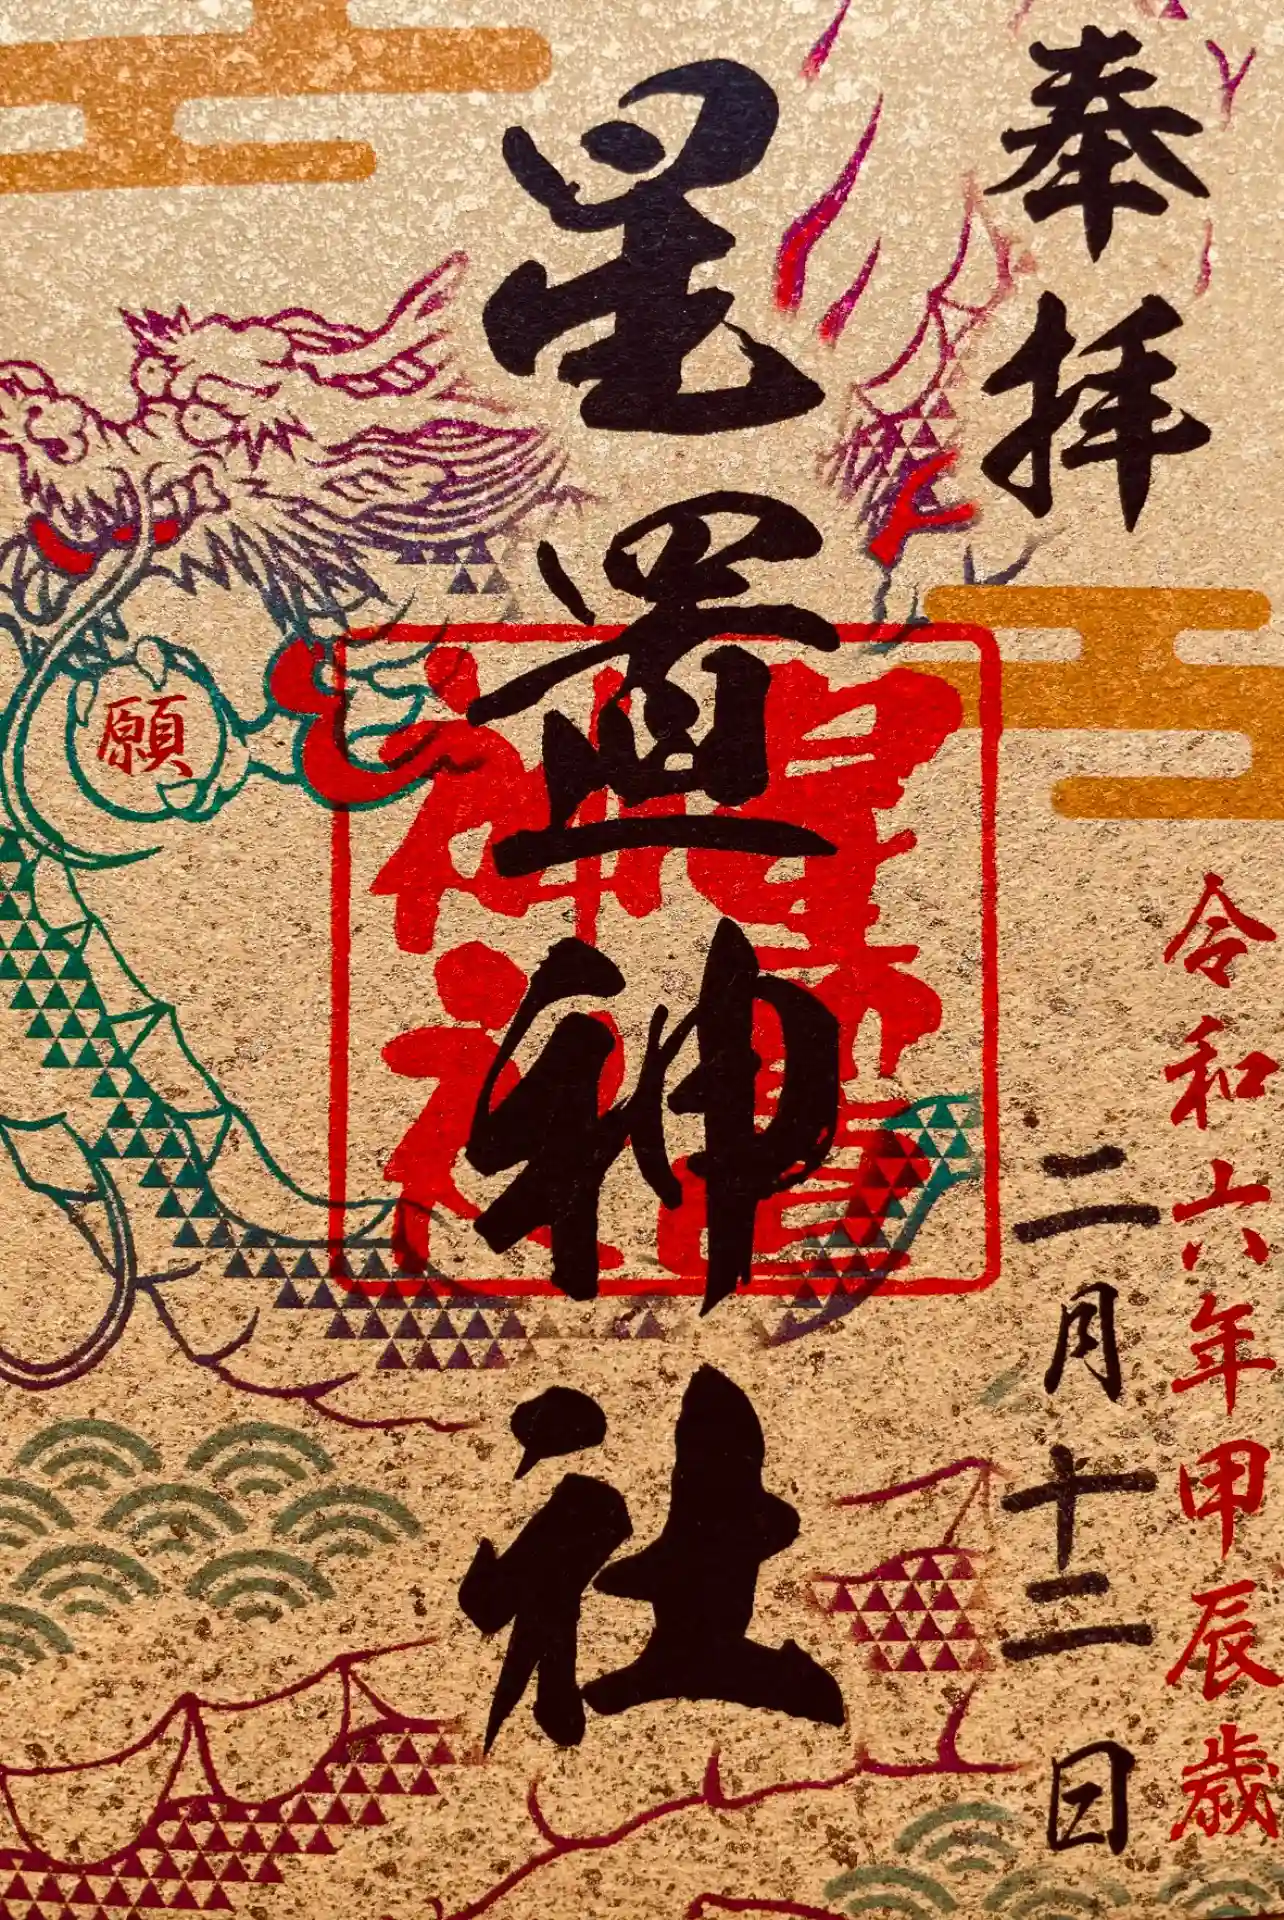 令和六年甲辰歳
奉拝
二月十二日
星置神社
星置
神社
願